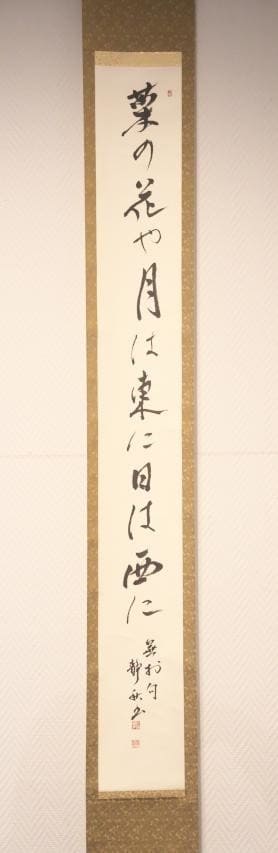 菜の花や月は東に日は西に
蕪村句
静秋書